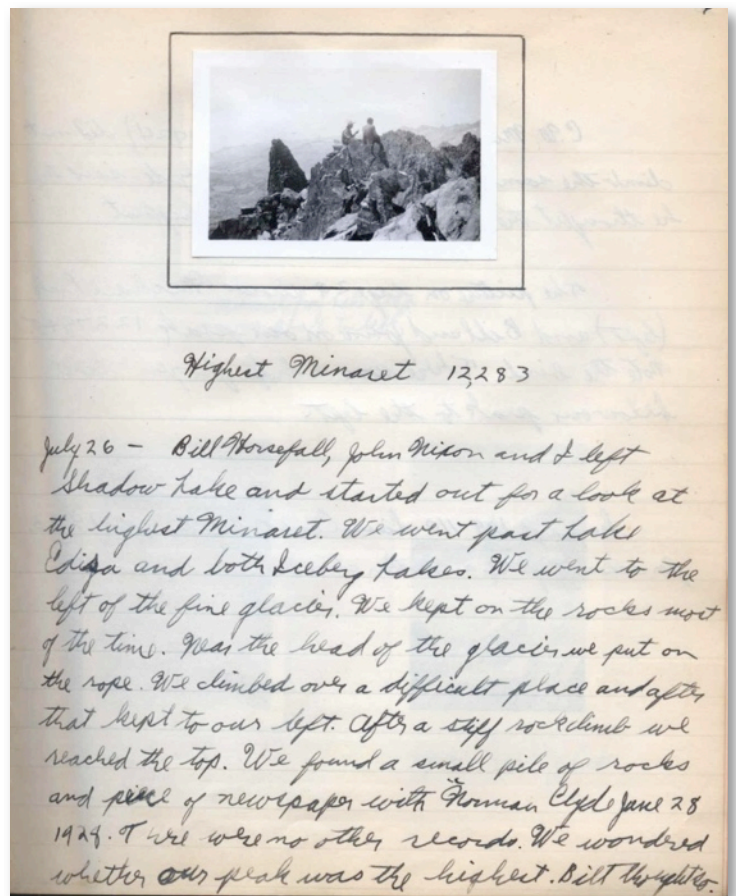 Highest Minaret 12,283
July 26 - Bill Horsefall, John Nixon and I left
Shadow Lake and started out for a look at
the highest Minaret. We went past Lake
Ediza and both Iceberg Lakes. We went to the
left of the fine glacier. We kept on the rocks most
of the time. Near the head of the glacier we put on
the rope. We climbed over a difficult place and after
that kept to our left. After a stiff rock climb we
reached the top. We found a small pile of rocks
and piece of newspaper with "Norman Clyde June 28
1928. There were no other records. We wondered
whether our peak was the highest. Bill thought so.